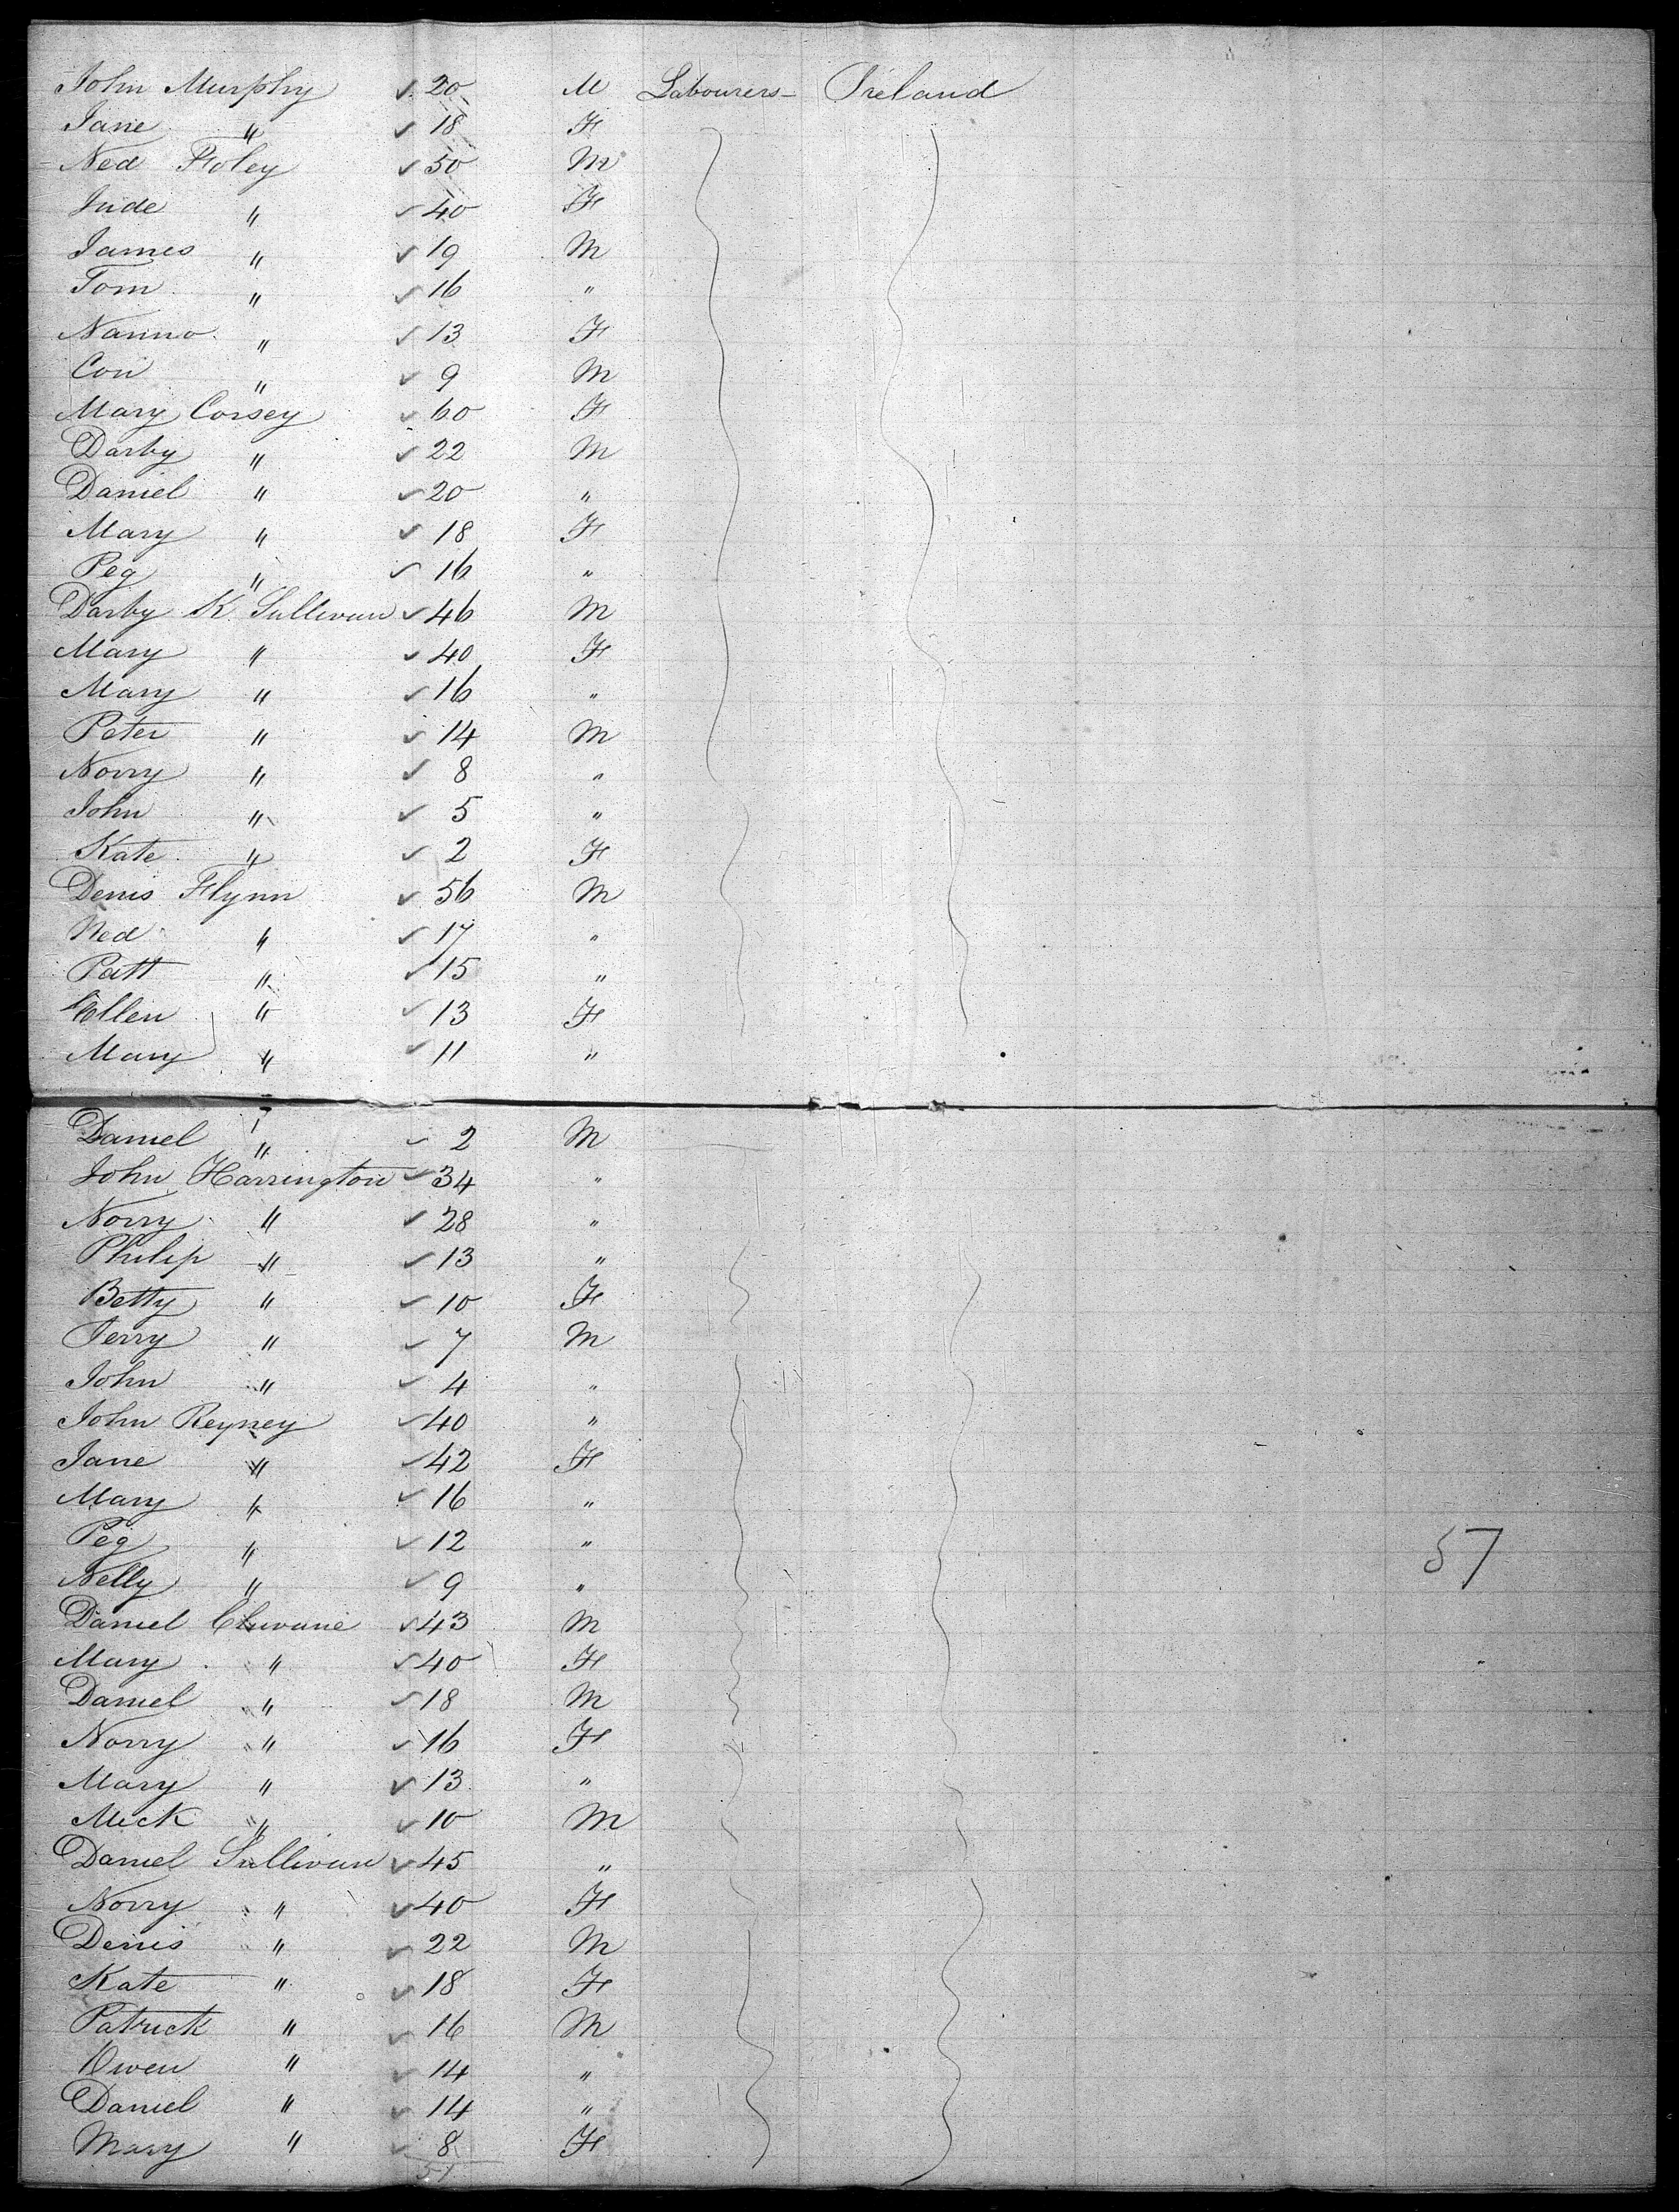 John Murphy ✓ 20 M Labourers - Ireland
Jane " ✓ 18 F
Ned Foley ✓ 50 M
Jude " ✓ 40 F
James " ✓ 19 M
Tom " ✓ 16 "
Nanno " ✓ 13 F
Con " ✓ 9 M
Mary Corsey ✓ 60 F
Darby " ✓ 22 M
Daniel " ✓ 20 "
Mary " ✓ 18 F
Peg " ✓ 16 "
Darby K. Sullivan ✓ 46 M
Mary " ✓ 40 F
Mary " ✓ 16 "
Peter " ✓ 14 M
Norry " ✓ 8 "
John " ✓ 5 "
Kate " ✓ 2 F
Denis Flynn ✓ 56 M
Ned " ✓ 17 "
Patt " ✓ 15 "
Ellen " ✓ 13 F
Mary " ✓ 11 "
Daniel " ✓ 2 M
John Harrington ✓ 34 "
Norry " ✓ 28 "
Philip " ✓ 13 "
Betty " ✓ 10 F
Jerry " ✓ 7 M
John " ✓ 4 "
John Reyney ✓ 40 "
Jane " ✓ 42 F
Mary " ✓ 16 "
Peg " ✓ 12 "
57
Nelly " ✓ 9 "
Daniel ✓ 43 M
Mary " ✓ 40 F
Daniel " ✓ 18 M
Norry " ✓ 16 F
Mary " ✓ 13 "
Mick " ✓ 10 M
Daniel Sullivan ✓ 45 "
Norry " ✓ 40 F
Denis " ✓ 22 M
Kate " ✓ 18 F
Patrick " ✓ 16 M
Owen " ✓ 14 "
Daniel " ✓ 14 "
Mary " ✓ 8 F
51